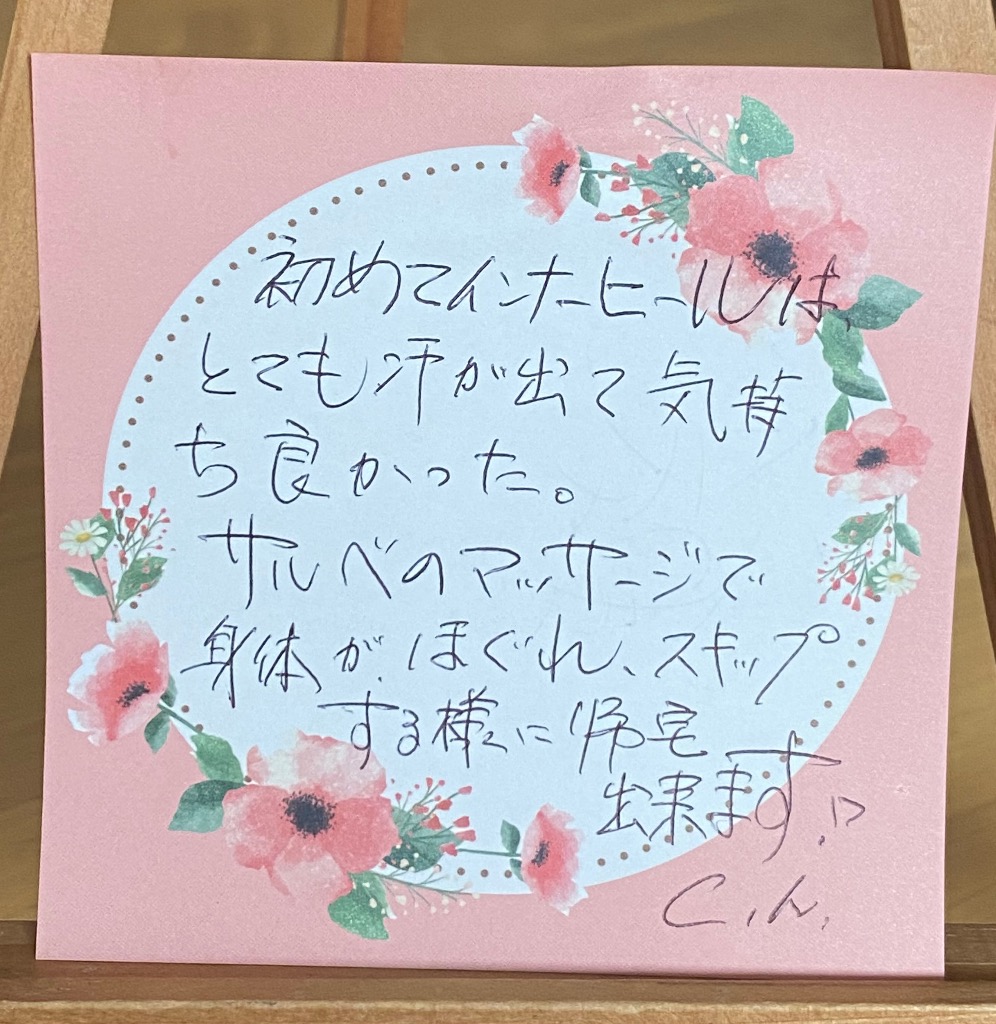 初めてインナーヒールは、
とても汗が出て気持
ち良かった。
サルベのマッサージで
身体が、ほぐれ、スキップ
する様に帰宅
出来ます。
C.